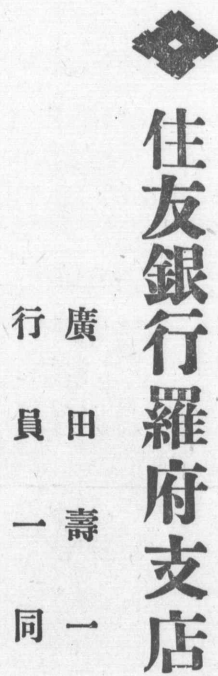 住友銀行羅府支店
廣田壽一
行員一同